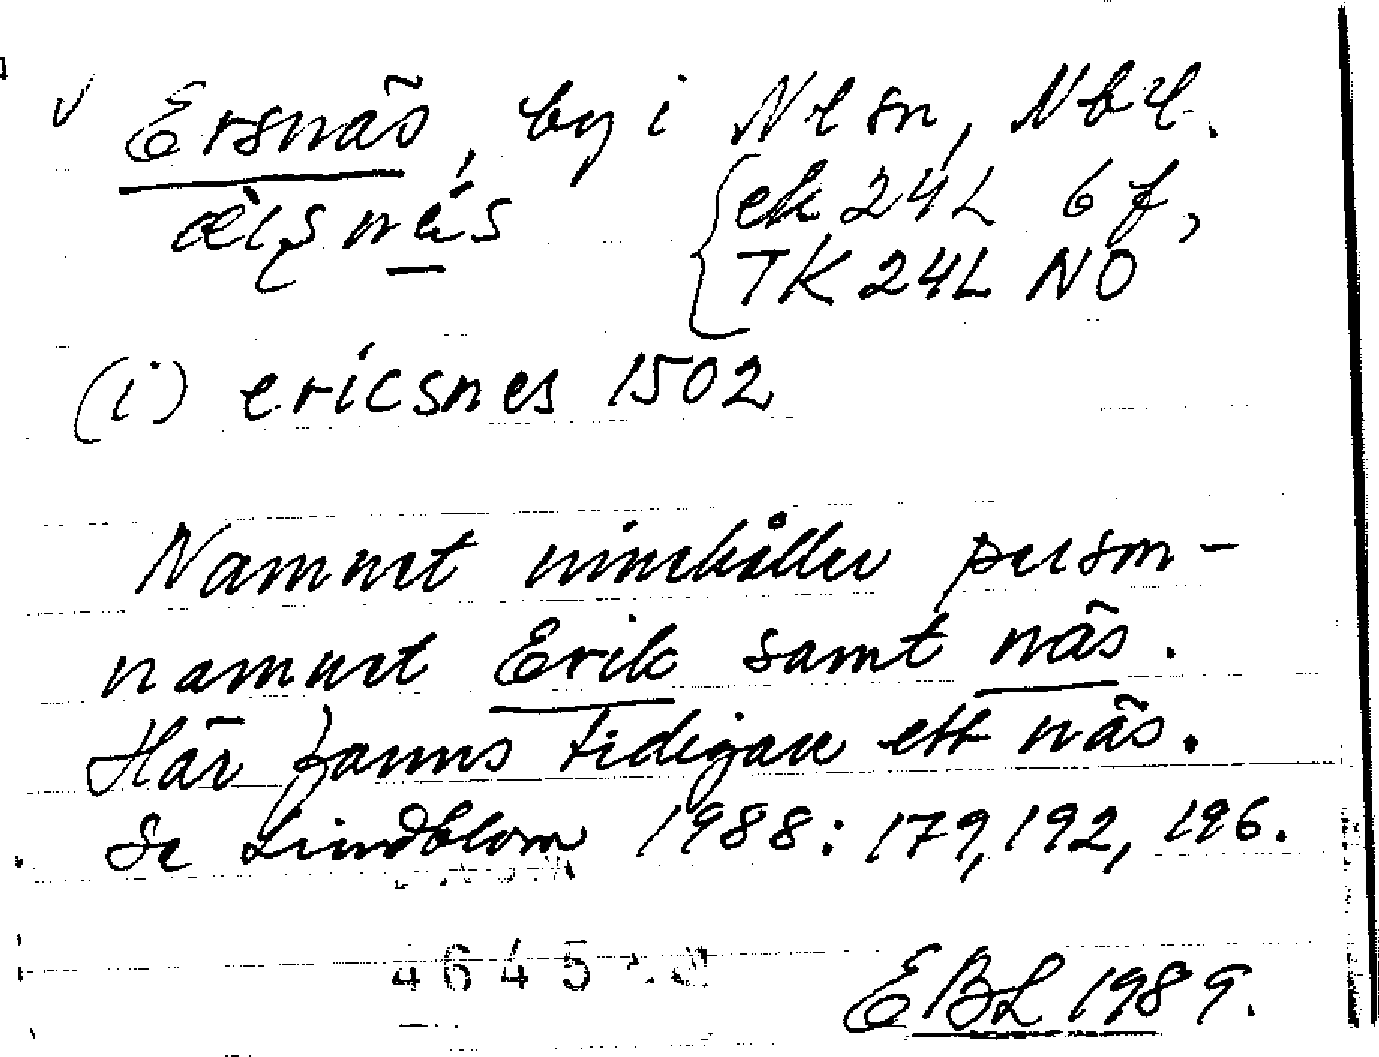 Ersnäs, by i Nlsn, Nbl.
ek 24L 6f,
TK 24L NO
(i) ericsnes 1502
Namnet innehåller person-
namnet Erik samt näs.
Här fanns tidigare ett näs.
Se Lindblom 1988: 179, 192, 196.
4645
EBL 1989.